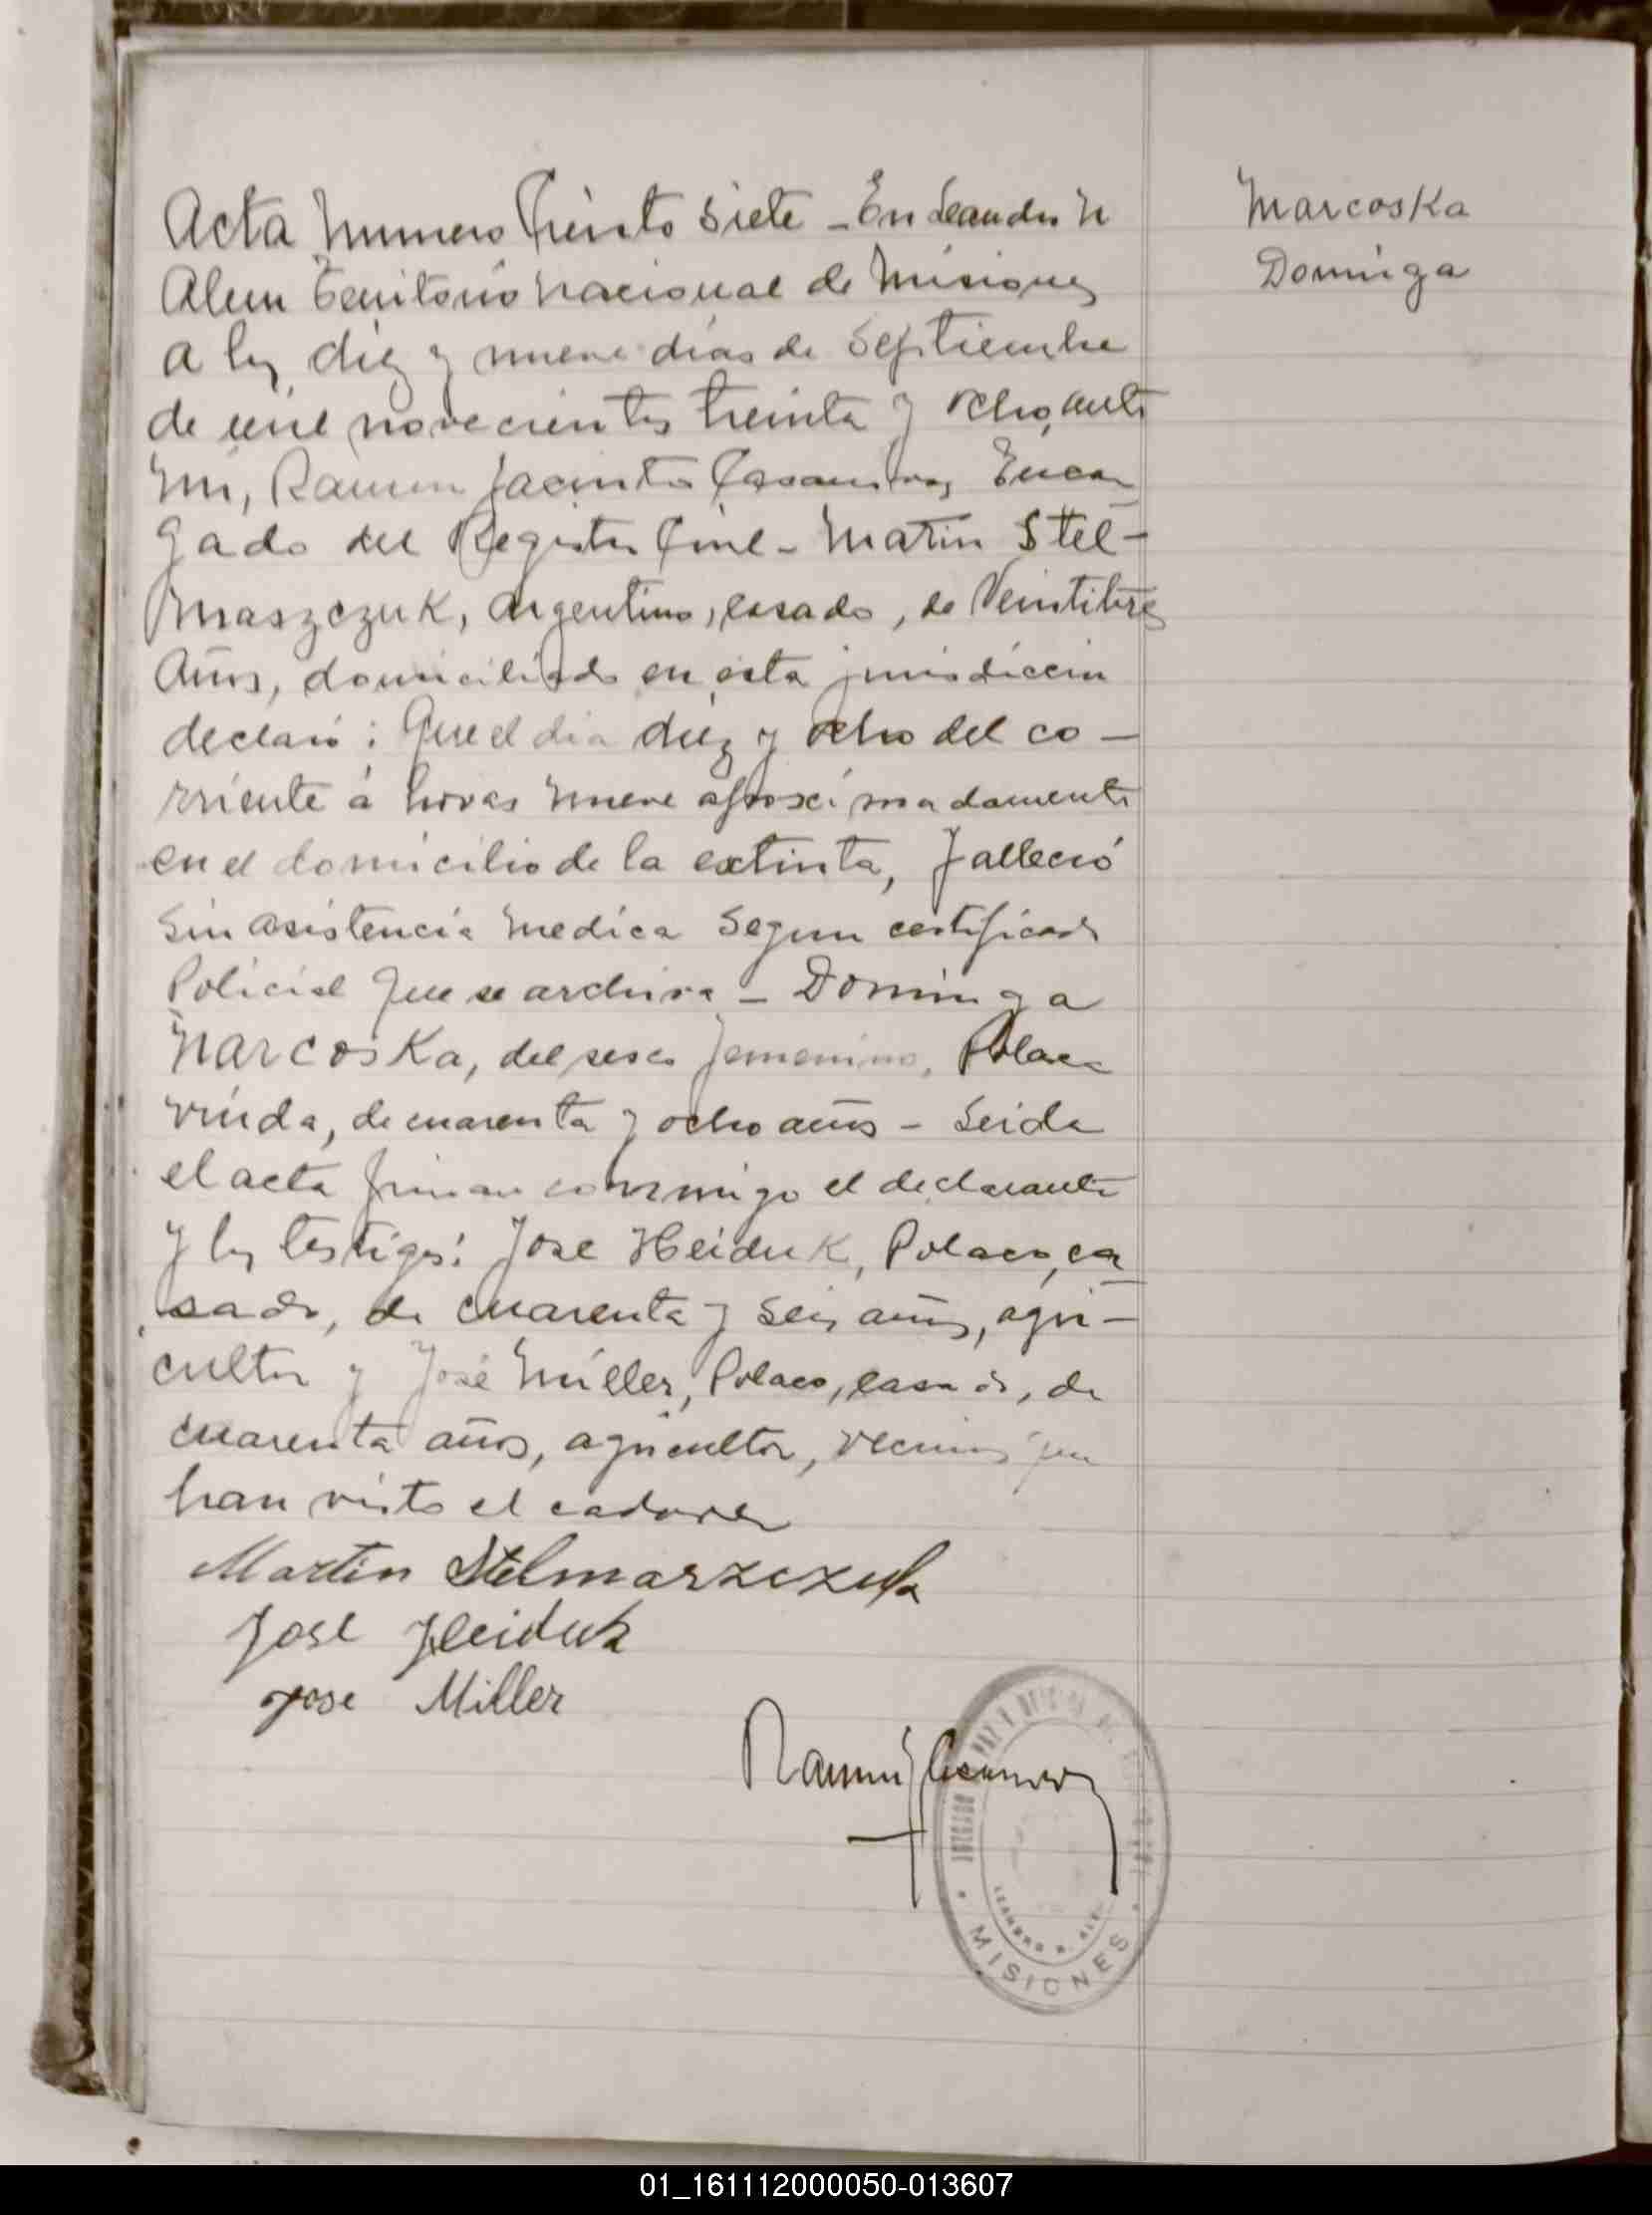 Acta Numero Ciento Siete - En Leandro N
Alem Territorio Nacional de Misiones
a los diez y nueve dias de Septiembre
de mil novecientos treinta y ocho, ante
mi, Ramon Jacinto Casanova, Encar
gado del Registro Civil - Martin Stel-
maszczuk, Argentino, casado, de Veintitres
Años, domiciliado en esta jurisdiccion
declaró: Que el dia diez y ocho del co-
rriente á horas nueve aproximadamente
en el domicilio de la extinta, falleció
sin asistencia medica segun certificado
Policial que se archiva - Dominga
Marcoska, del sexo femenino, Polaca
viuda, de cuarenta y ocho años - Leida
el acta firman conmigo el declarante
y los testigos: Jose Heiduk, Polaco, ca
sado, de cuarenta y seis años, agri-
cultor y José Miller, Polaco, casado, de
cuarenta años, agricultor, vecinos que
han visto el cadaver
Martin Stelmarzczuk
Jose Heiduk
Jose Miller
Ramon J Casanova
MISIONES
LEANDRO N. ALEM
Marcoska
Dominga
01_161112000050-013607